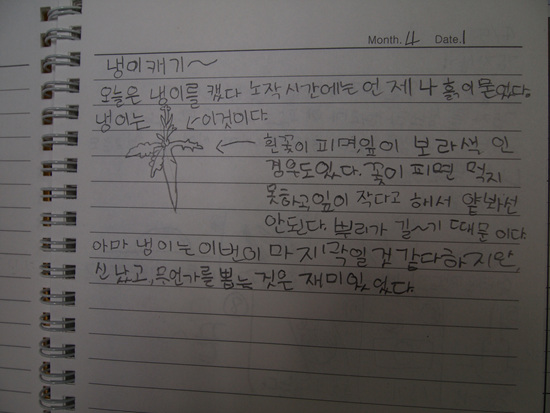 Month. 4 Date. 1
냉이캐기~
오늘은 냉이를 캤다 노작시간에는 언제나 흙이 묻었다.
냉이는 ←이것이다.
← 흰꽃이 피며, 잎이 보라색 인
경우도있다. 꽃이 피면 먹지
못하고, 잎이 작다고 해서 얕봐선
안된다. 뿌리가 길~기 때문 이다
아마 냉이는 이번이 마지막일 것 같다하지만,
신났고, 무언가를 뽑는 것은 재미있었다.